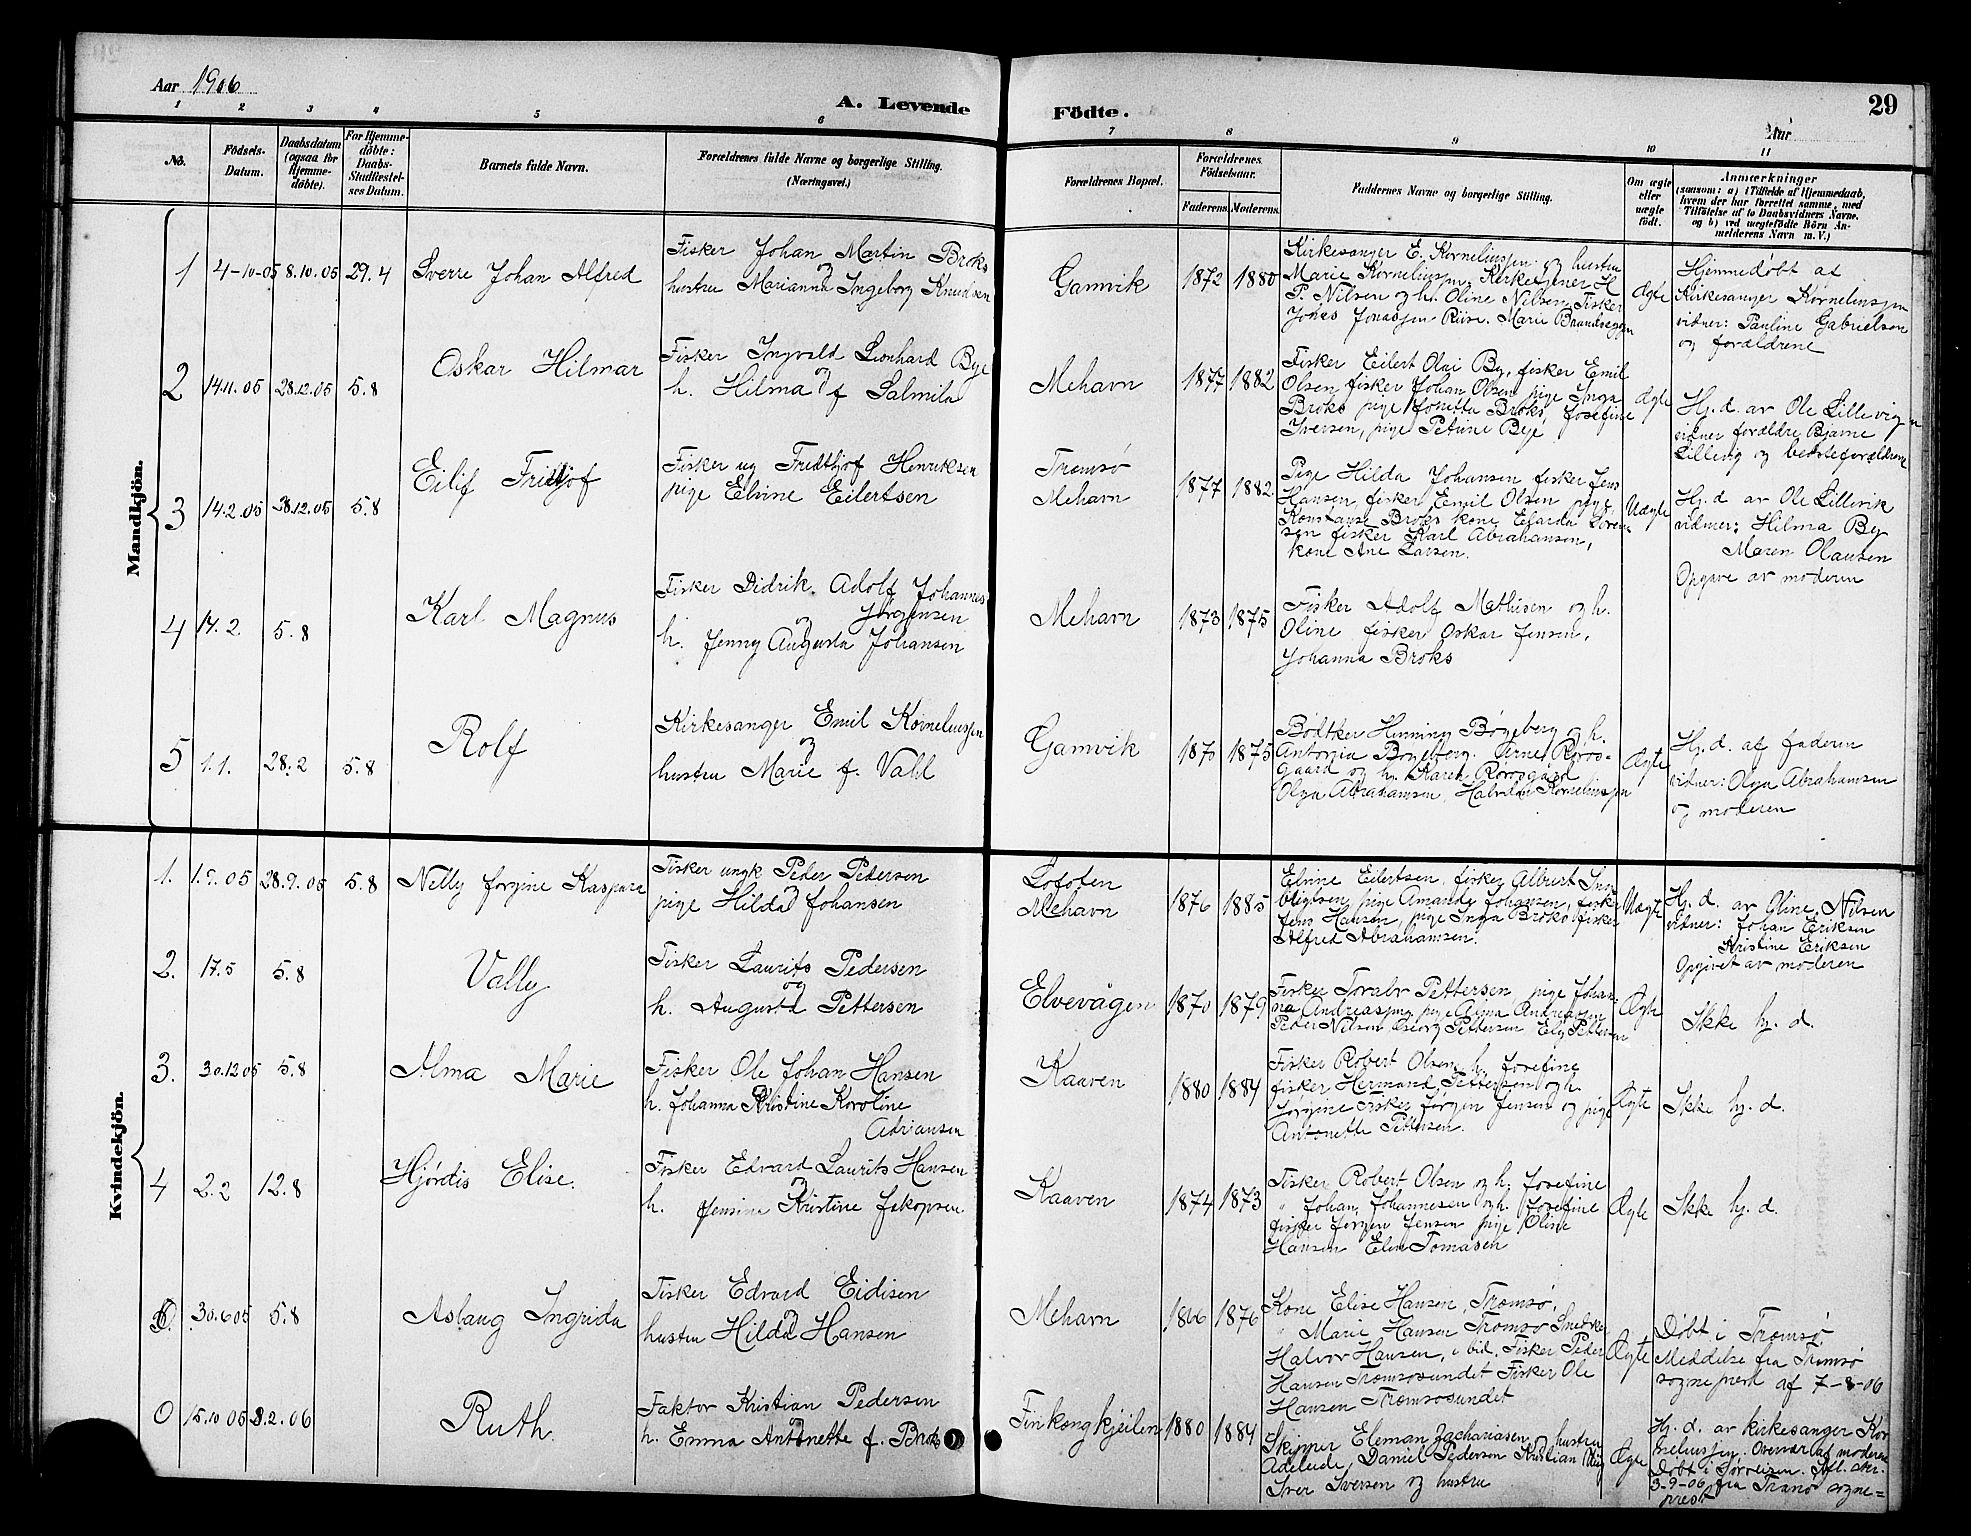 Aar 1906
A. Levende Födte.
29
Aar
1 2 3 4 5 6 7 8 9 10 11
No.
Födsels-Datum.
Daabsdatum (ogsaa for Hjemme-döbte).
For Hjemme-döbte: Daabs-Stadfæstel-ses Datum.
Barnets fulde Navn.
Forældrenes fulde Navne og borgerlige Stilling. (Næringsvei.)
Forældrenes Bopæl.
Forældrenes Födselsaar.
Faderens. Moderens.
Faddernes Navne og borgerlige Stilling.
Om ægte eller uægte födt.
Anmærkninger
(saasom: a) i Tilfælde af Hjemmedaab, hvem der har forrettet samme, med Tilföielse af to Daabsvidners Navne. og b) ved uægtefödte Börn An-melderens Navn m. V.)
Mandkjön.
1 4-10-05 8.10.05 29.4 Sverre Johan Alfred
Fisker Johan Martin Broks
og
hustru Marianna Ingeborg Knudsen
Gamvik 1872 1880
Kirkesanger E. Kornelinssen og hustru
Marie Kornelinssen, Kirketjener H
P. Nilsen og h. Oline Nilsen, Fisker
Jonas Jonassen Riise. Marie
Ægte
Hjemmedøbt af
Kirkesanger Kornelinssen
vidner: Pauline Gabrielsen
og forældrene
2 14.11.05 28.12.05 5.8 Oskar Hilmar
Fisker Ingvald Leonhard Bye
og
h. Hilma f Salmila
Mehavn 1877 1882
Fisker Eilert Olai By, fisker Emil
Olsen, fisker Johan Olsen, pige Inga
Broks pige Jonetta Broks, Josefine
Iversen, pige Petrine Bye
Ægte
Hj.d. av Ole Lillevig
vidner forældre Bjarne
Lillevig og bedsteforældrene
3 14.2.05 28.12.05 5.8 Eilif Fridtjof
Fisker ug Fredthjof Henriksen
pige Elvine Eilertsen
Tromsø
Mehavn 1877 1882
Pige Hilda Johansen fisker Jens
Hansen, fisker Emil Olsen pige
Konstanse Broks kone Edarda
sen fisker Karl Abrahansen,
kone Ane Larsen.
Uægte
Hj.d av Ole Lillevik
vidner: Hilma By
Maren Olausen
Opgave av moderen
4 17.2 5.8 Karl Magnus
Fisker Didrik Adolf Johannes
Jørgensen
og
h. Jenny Augusta Johansen
Mehavn 1873 1875
Fisker Adolf Mathisen og h.
Oline fisker Oskar Jensen,
Johanna Broks
5 1.1. 28.2 5.8 Rolf
Kirkesanger Emil Kornelinssen
og
hustru Marie f. Vahl
Gamvik 1870 1875
Bødtker Henning Bøgeberg og h.
Antonia Bogeberg. Arne Røros-
gaard og h. Karen Rørosgaard
Olga Abrahamsen, Halvdan Kornelinssen
Ægte
Hj.d. af faderen
vidner: Olga Abrahamsen
og moderen
Kvindekjön.
1. 1.9.05 28.9.05 5.8 Nelly Jorgine Kaspara
Fisker ungk Peder Pedersen
og
pige Hilda Johansen
Lofoten
Mehavn 1876 1885
Elvine Eilertsen, fisker Albert
pige Amanda Johansen, fisker
Jens Hansen, pige Inga Broks fisker
Alfred Abrahamsen.
Uægte
Hj.d. av Oline Nilsen
vidner: Johan Eriksen
Kristine Eriksen
Opgivet av moderen
2. 17.5 5.8 Vally
Fisker Laurits Pedersen
og
h. Augusta Pettersen
Elvevågen 1870 1879
Fisker Toralv Pettersen pige Johan-
na Andreassen, pige Alma Andreassen
Peder Nilsen Georg Pettersen Ely Pettersen
Ægte
Ikke hj.d.
3. 30.12.05 5.8 Alma Marie
Fisker Ole Johan Hansen
og
h. Johanna Kristine Karoline
Adriansen
Kaaven 1880 1884
Fisker Robert Olsen h. Josefine
fisker Hermand Pettersen og h.
Jorgine Fisker Jørgen Jensen og pige
Antonette Pettersen.
Ægte
Ikke hj.d.
4 2.2 12.8 Hjørdis Elise.
Fisker Edvard Laurits Hansen
og
h. Jensine Kristine Jakopsen
Kaaven 1874 1873
Fisker Robert Olsen og h. Josefine
" Johan Johannesen og h. Josefine
fisker Jørgen Jensen pige Oline
Hansen Elen Tomasen
Ægte
Ikke hj.d.
0. 30.6.05 5.8 Aslaug Ingrida
Fisker Edvard Eidisen
og
hustru Hilda Hansen
Mehavn 1866 1876
Kone Elise Hansen, Tromsø,
" Marie Hansen Tromsø Snedker
Halvor Hansen, ibid. Fisker Peder
Hansen Tromsosundet Fisker Ole
Hansen Tromsosundet
Ægte
Døbt i Tromsø
Meddelse fra Tromsø
sogneprest af 7-8-06
0 15.10.05 8.2.06 Ruth.
Faktor Kristian Pedersen
og
h. Emma Antonette f. Broks
Finkongkjeilen 1880 1884
Skipper Eleman Zachariasen og hustru
Adeleide, Daniel Pedersen Kristian
Iver Iversen og hustru
Ægte
Hj.d. av kirkesanger Kor
nelinssen. Overvær af moderen
Døbt i Sørreisen. Afl. atr.
3-9-06 fra Tranø sogne=
prest